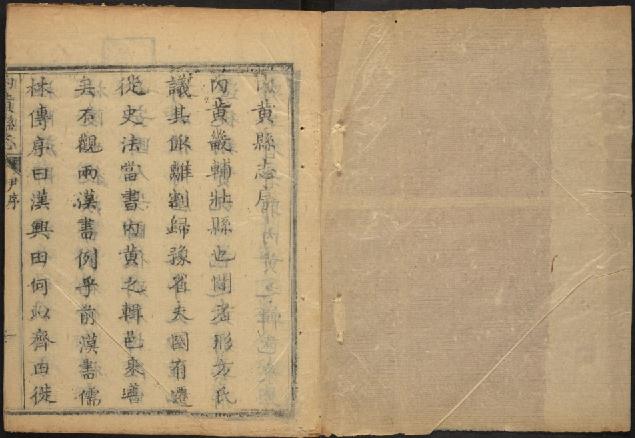 內黃縣志序
內黃畿輔壯縣也間者形方氏
議其離割歸豫省夫國有遷
從史法當書內黃之輯邑乘譜
矣不觀兩漢書例乎前漢書儒
林傳序曰漢興田何以齊田徙
內黃縣志 尹序